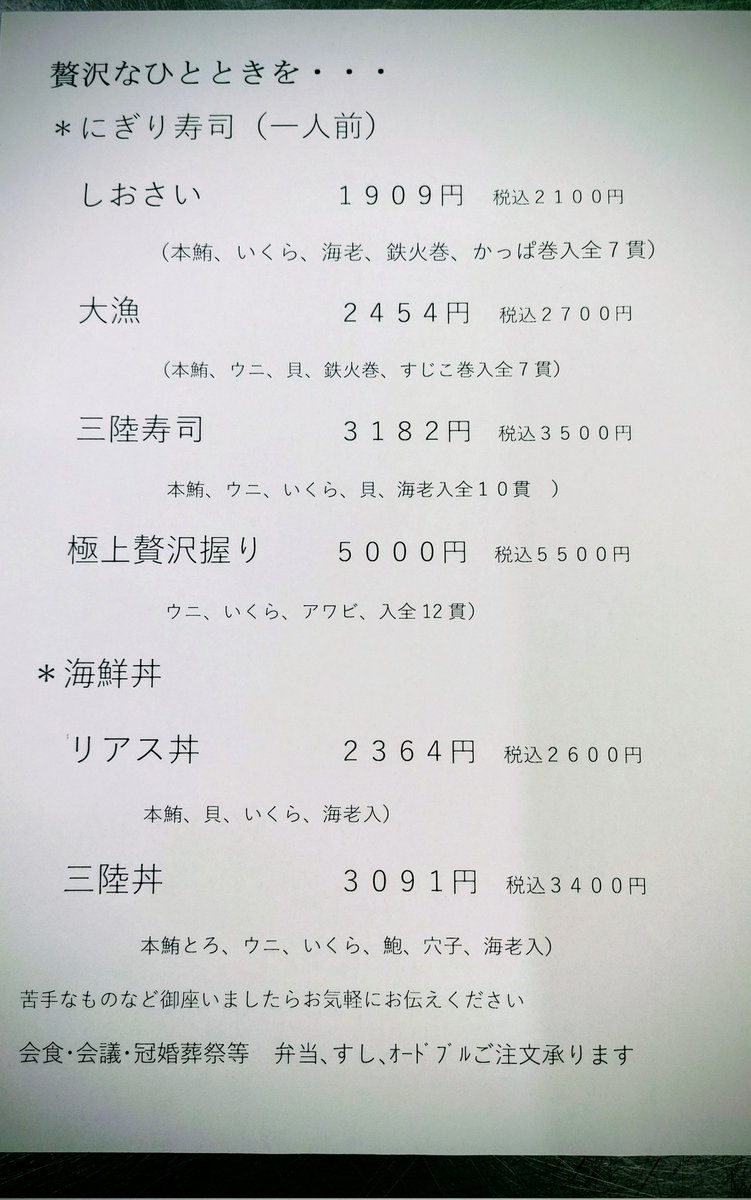 贅沢なひとときを・・・
＊にぎり寿司（一人前）
しおさい　１９０９円　税込２１００円
（本鮪、いくら、海老、鉄火巻、かっぱ巻入全７貫）
大漁　２４５４円　税込２７００円
（本鮪、ウニ、貝、鉄火巻、すじこ巻入全７貫）
三陸寿司　３１８２円　税込３５００円
本鮪、ウニ、いくら、貝、海老入全１０貫　）
極上贅沢握り　５０００円　税込５５００円
ウニ、いくら、アワビ、入全12貫）
＊海鮮丼
リアス丼　２３６４円　税込２６００円
本鮪、貝、いくら、海老入）
三陸丼　３０９１円　税込３４００円
本鮪とろ、ウニ、いくら、鮑、穴子、海老入）
苦手なものなど御座いましたらお気軽にお伝えください
会食･会議･冠婚葬祭等　弁当､すし､ｵｰﾄﾞﾌﾞﾙご注文承ります